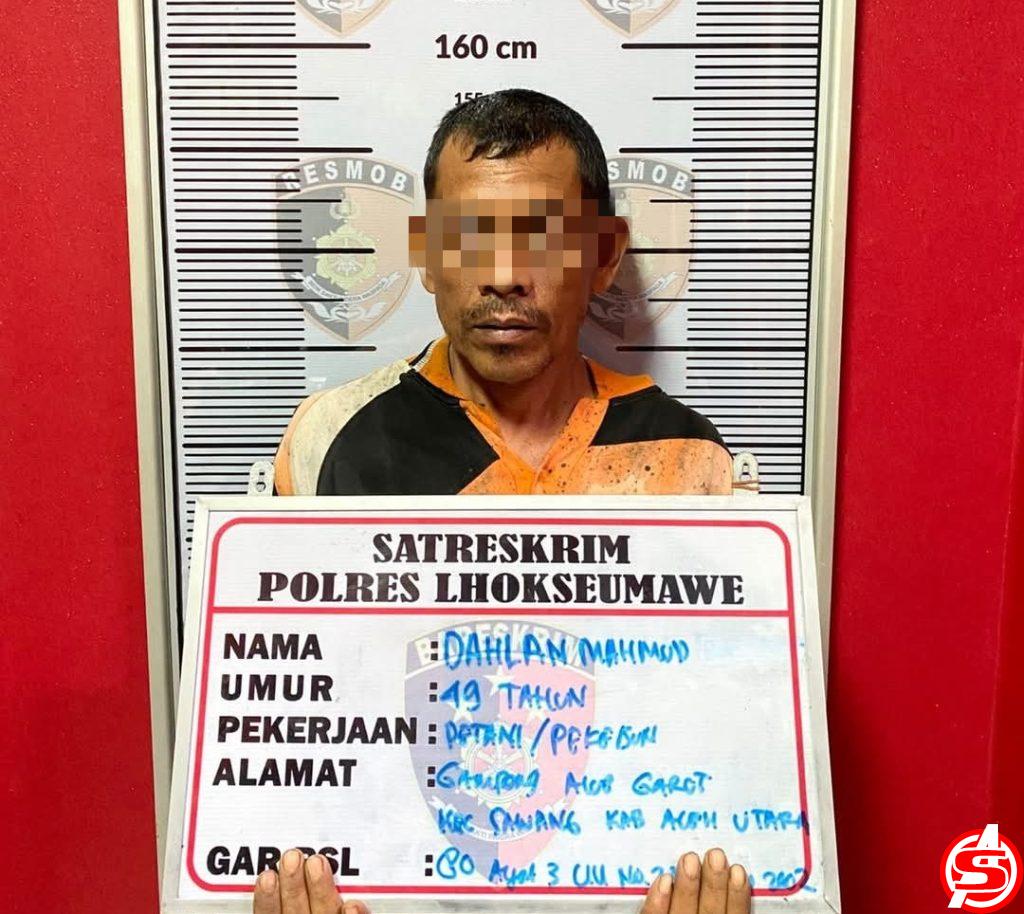 160 cm
155
RESMOB
RESMOB
SATRESKRIM
POLRES LHOKSEUMAWE
BARESKRIM
NAMA : DAHLAN MAHMUD
UMUR : 49 TAHUN
PEKERJAAN : PETANI/PEKEBUN
ALAMAT : GAMPONG ALUE GAROT
KEC SAWANG KAB ACEH UTARA
GAR PSL : 80 AYAT 3 U.U. NO. 2002